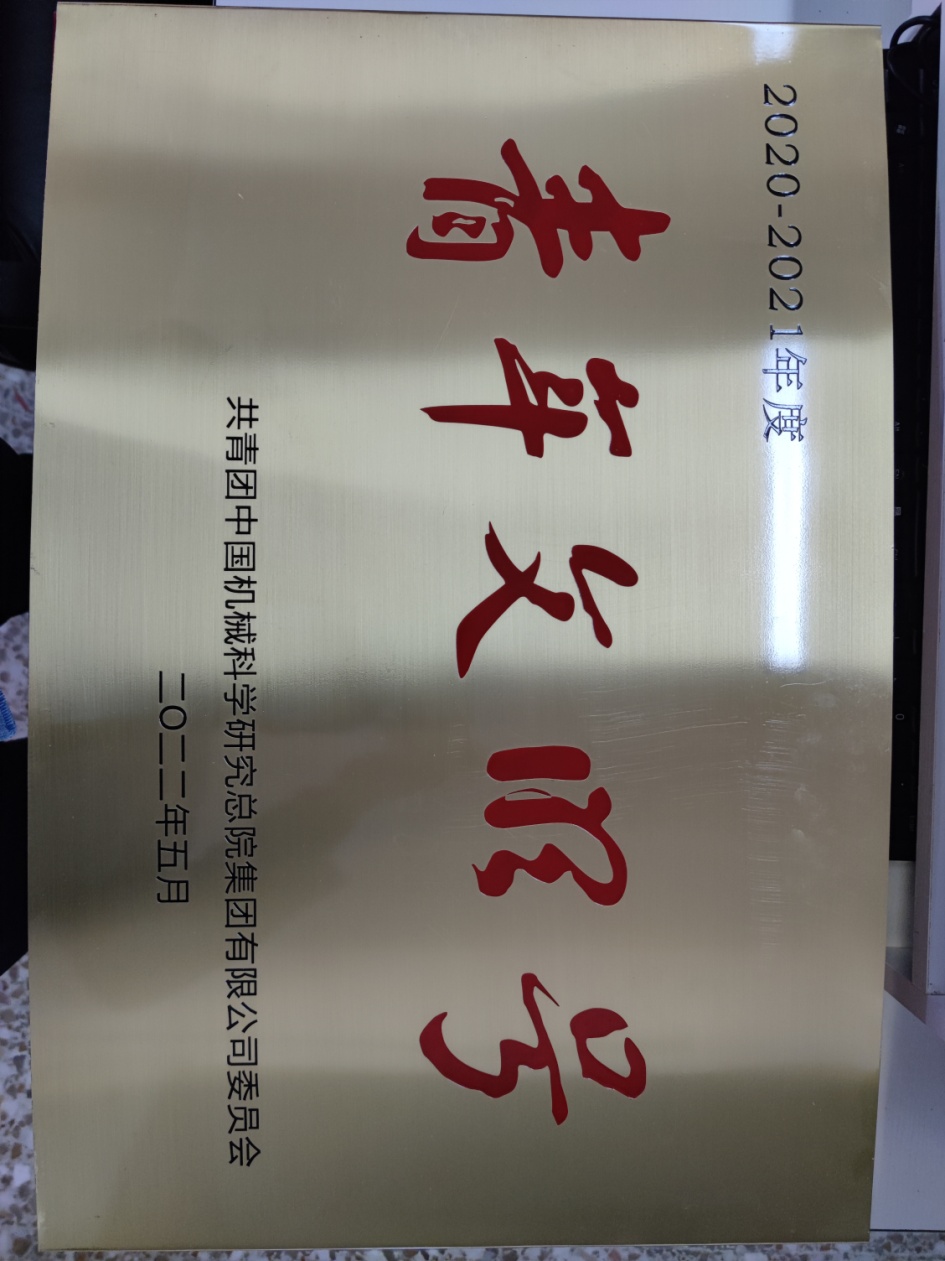 2020-2021年度
青年文明号
共青团中国机械科学研究总院集团有限公司委员会
二〇二二年五月